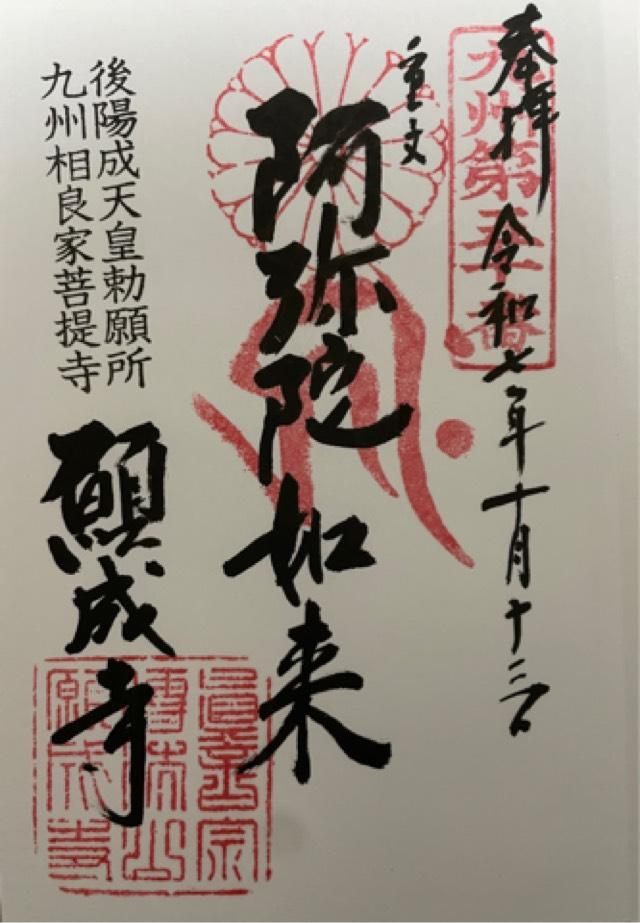 奉拝 令和七年十月十三日
九州第五十番
重文
阿弥陀如来
後陽成天皇勅願所
九州相良家菩提寺
願成寺
真言宗
願成寺